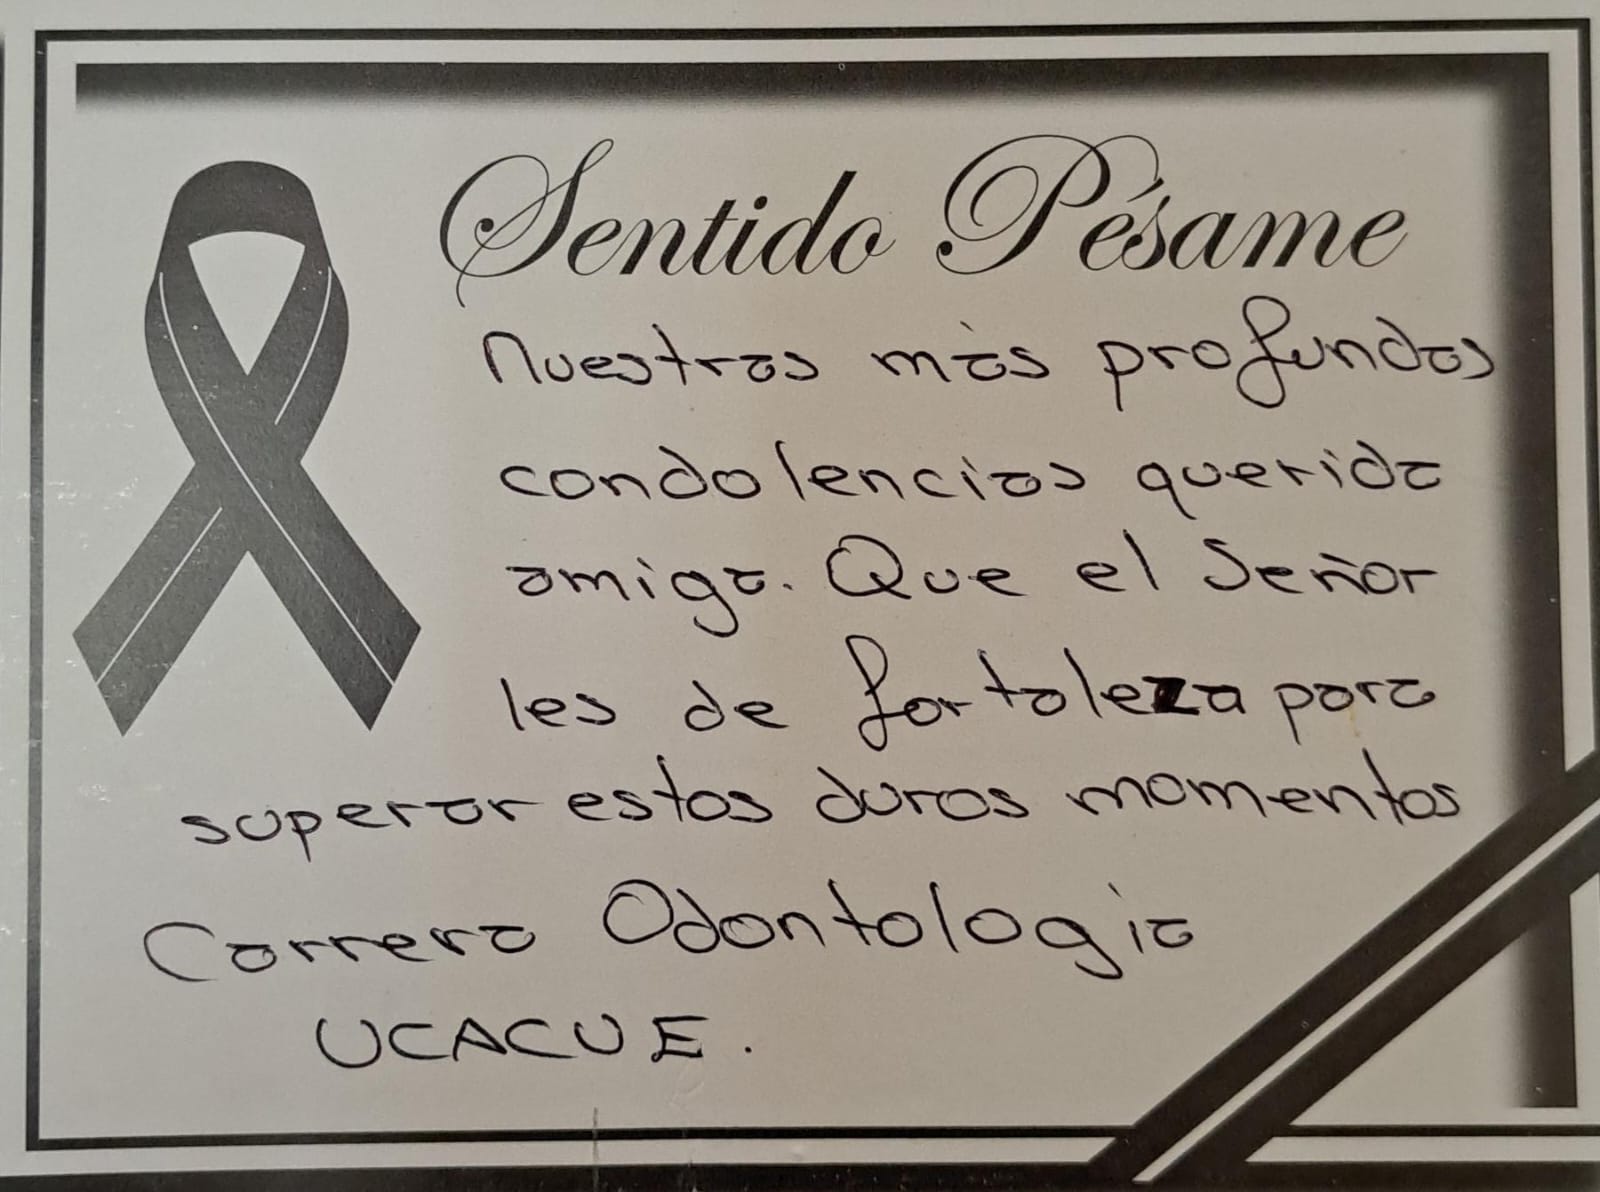 Sentido Pésame
Nuestras más profundas
condolencias querida
amiga. Que el Señor
les de fortaleza para
superar estos duros momentos
Carrera Odontologia
UCACUE.